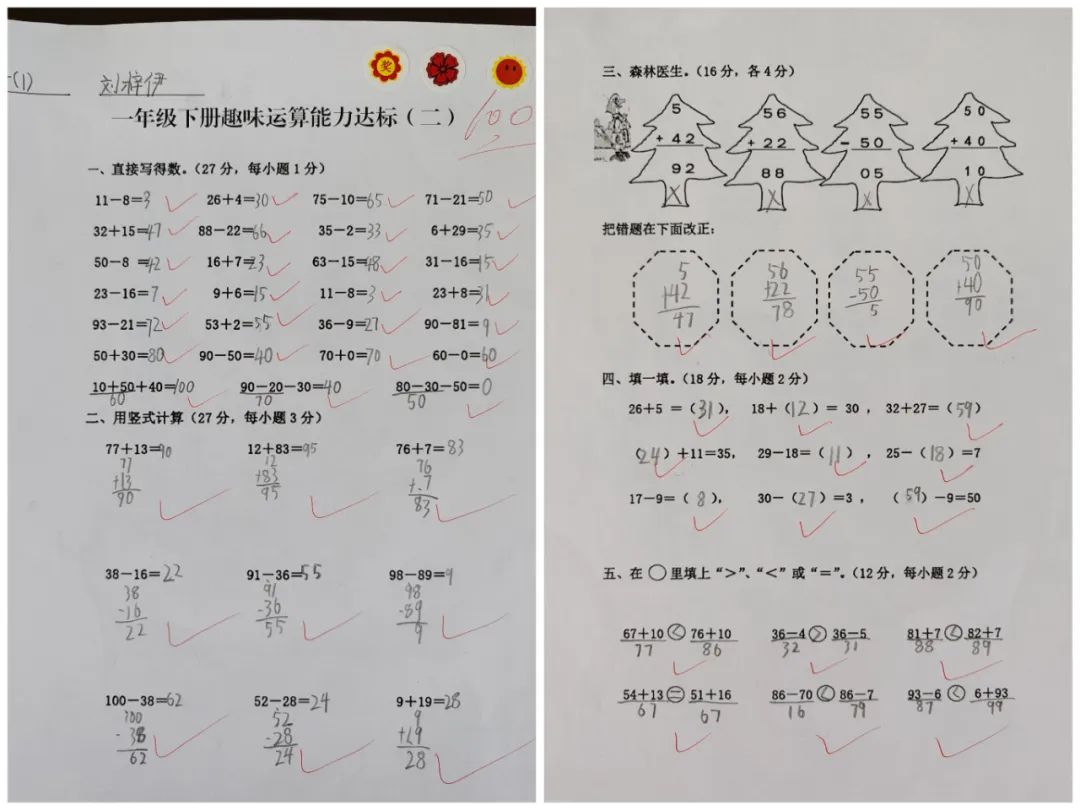 (1) 刘梓伊
奖
一年级下册趣味运算能力达标(二) 100
一、直接写得数。(27分,每小题1分)
11−8=3 26+4=30 75−10=65 71−21=50
32+15=47 88−22=66 35−2=33 6+29=35
50−8 =42 16+7=23 63−15=48 31−16=15
23−16=7 9+6=15 11−8=3 23+8=31
93−21=72 53+2=55 36−9=27 90−81=9
50+30=80 90−50=40 70+0=70 60−0=60
10+50+40=100 90−20−30=40 80−30−50=0
60 70 50
二、用竖式计算(27分,每小题3分)
77+13=90 12+83=95 76+7=83
77 12 76
+13 +83 +.7
90 95 83
38−16=22 91−36=55 98−89=9
38 91 98
-16 -36 -89
22 55 9
100−38=62 52−28=24 9+19=28
100 52 9
-38 -28 +19
62 24 28
三、森林医生。(16分,各4分)
5 56 55 50
+42 +22 −50 +40
92 88 05 10
X X X X
把错题在下面改正:
5 56 55 50
+42 +22 -50 +40
47 78 5 90
四、填一填。(18分,每小题2分)
26+5 =(31), 18+(12)= 30 , 32+27=(59)
(24)+11=35, 29−18=(11) , 25−(18)=7
17−9=(8), 30−(27)=3 , (59)−9=50
五、在○里填上“>”、“<”或“=”。(12分,每小题2分)
67+10<76+10 36−4>36−5 81+7<82+7
77 86 32 31 88 89
54+13=51+16 86−70<86−7 93−6<6+93
67 67 16 79 87 99